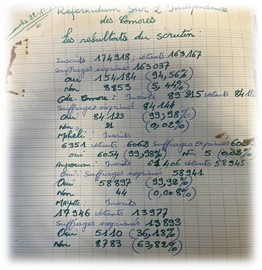 Référendum Sur l'Indépendance
des Comores
Les résultats du scrutin:
Inscrits 174918, votants 163167
Suffrages exprimés 163037
Oui 154184 (94,56%)
Non 8853 5,44%)
Gde Comore: Inscrits 89815 votants 8418
Suffrages exprimés 84144
Oui 84123 (99,98%)
Non 21 (0,02%)
Mohéli: Inscrits
6351 votants 6068 Suffrages Exprimés
Oui 6054 (99,98%) Non 5
Anjouan: Inscrits votants 58945
Suffrages exprimés 58941
Oui 58897 (99,92%)
Non 44 (0,08%)
Mayotte Inscrits
17946 votants 13977
Suffrages exprimés 13893
Oui 5110 (36,78%)
Non 8783 (63,22%)